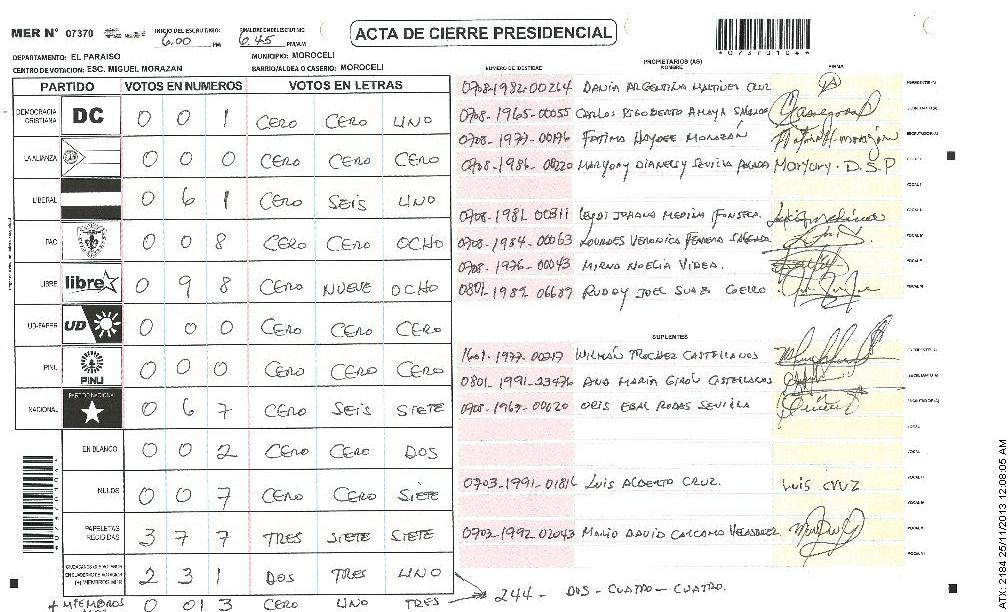 MER N° 07370 INICIO DEL ESCRUTINIO 6.00 PM FINALIZACION DEL ESCRUTINIO 6.45 PM/AM
ACTA DE CIERRE PRESIDENCIAL
DEPARTAMENTO: EL PARAISO MUNICIPIO: MOROCELI
CENTRO DE VOTACION: ESC. MIGUEL MORAZAN BARRIO/ALDEA O CASERIO: MOROCELI
PARTIDO VOTOS EN NUMEROS VOTOS EN LETRAS
DEMOCRACIA CRISTIANA DC 0 0 1 CERO CERO UNO
LA ALIANZA 0 0 0 CERO CERO CERO
LIBERAL 0 6 1 CERO SEIS UNO
PAC 0 0 8 CERO CERO OCHO
LIBRE libre 0 9 8 CERO NUEVE OCHO
UD-FAPER UD 0 0 0 CERO CERO CERO
PINU PINU 0 0 0 CERO CERO CERO
NACIONAL PARTIDO NACIONAL 0 6 7 CERO SEIS SIETE
EN BLANCO 0 0 2 CERO CERO DOS
NULOS 0 0 7 CERO CERO SIETE
PAPELETAS RECIBIDAS 3 7 7 TRES SIETE SIETE
CIUDADANOS QUE VOTARON EN CUADERNO DE VOTACION (+) MIEMBROS MER 2 3 1 DOS TRES UNO
+ MIEMBROS 0 01 3 CERO UNO TRES 244 - DOS - CUATRO - CUATRO.
PROPIETARIOS (AS)
NUMERO DE IDENTIDAD NOMBRE FIRMA
0708-1982-00264 DANIA ARGENTINA MARTINES CRUZ
0708-1965-00055 CARLOS RIGOBERTO AMAYA
FATIMA HAYDEE MORAZAN
0708-1986-00220 MARYORY DIANELSY SEVILLA Maryory. D.S.P
0708-1981 00311 LEYDI JOHANA MEDINA FONSECA.
0708-1984-00063 LOURDES VERONICA
0708-1976-00043 MIRNA NOELIA VIDEA.
0801 1989 06689 RUDDY JOEL
SUPLENTES
1601-1977-00217 WILMAN TROCHEZ CASTELLANOS
0801-1991-23476 ANA MARIA GIRON CASTELLANOS
ORIS EBAL RODAS SEVILLA
0703-1991-01816 LUIS ALBERTO CRUZ. LUIS CRUZ
0703-1992 02043 MARIO DAVID CARCAMO VELASQUEZ
0737010 4
ATX: 2184 25/11/2013 12:08:05 AM